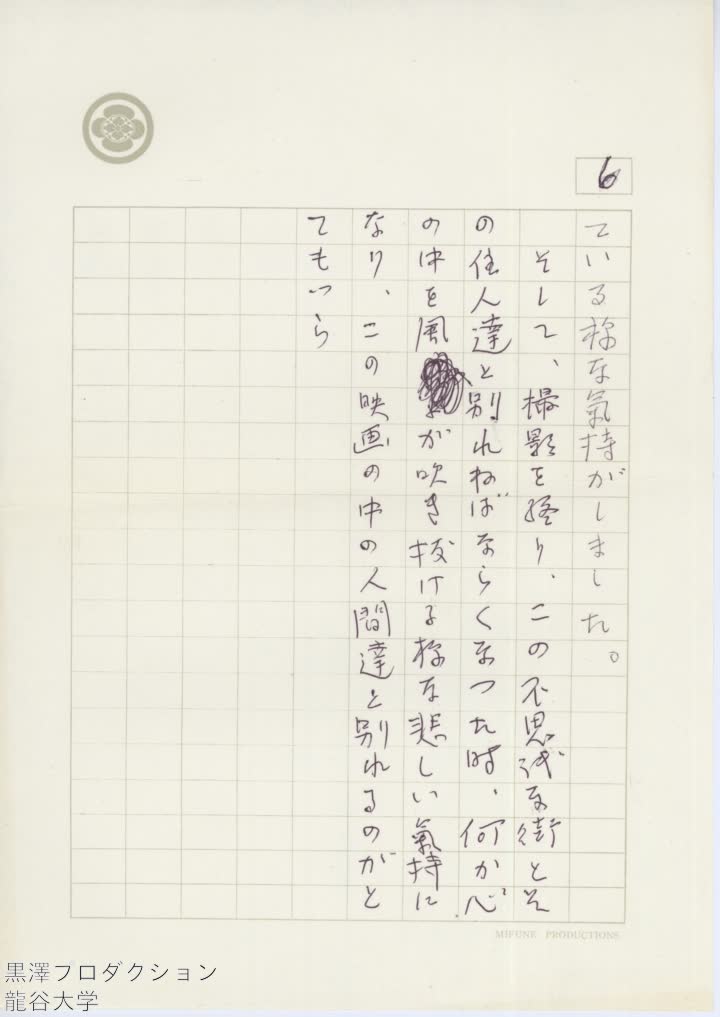 6
ている様な氣持がしました。
そして、撮影を終り、この不思議な街とそ
の住人達と別れねばならくなつた時、何か心
の中を風が吹き抜ける様な悲しい氣持に
なり、この映画の中の人間達と別れるのがと
てもつら
MIFUNE PRODUCTIONS
黒澤プロダクション
龍谷大学